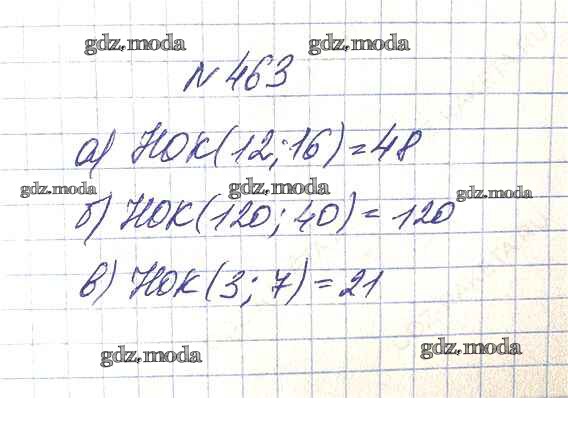 gdz.moda gdz.moda
N 463
а) НОК(12;16)=48
gdz.moda gdz.moda gdz.moda
б) НОК(120; 40) = 120
в) НОК(3; 7) = 21
gdz.moda gdz.moda